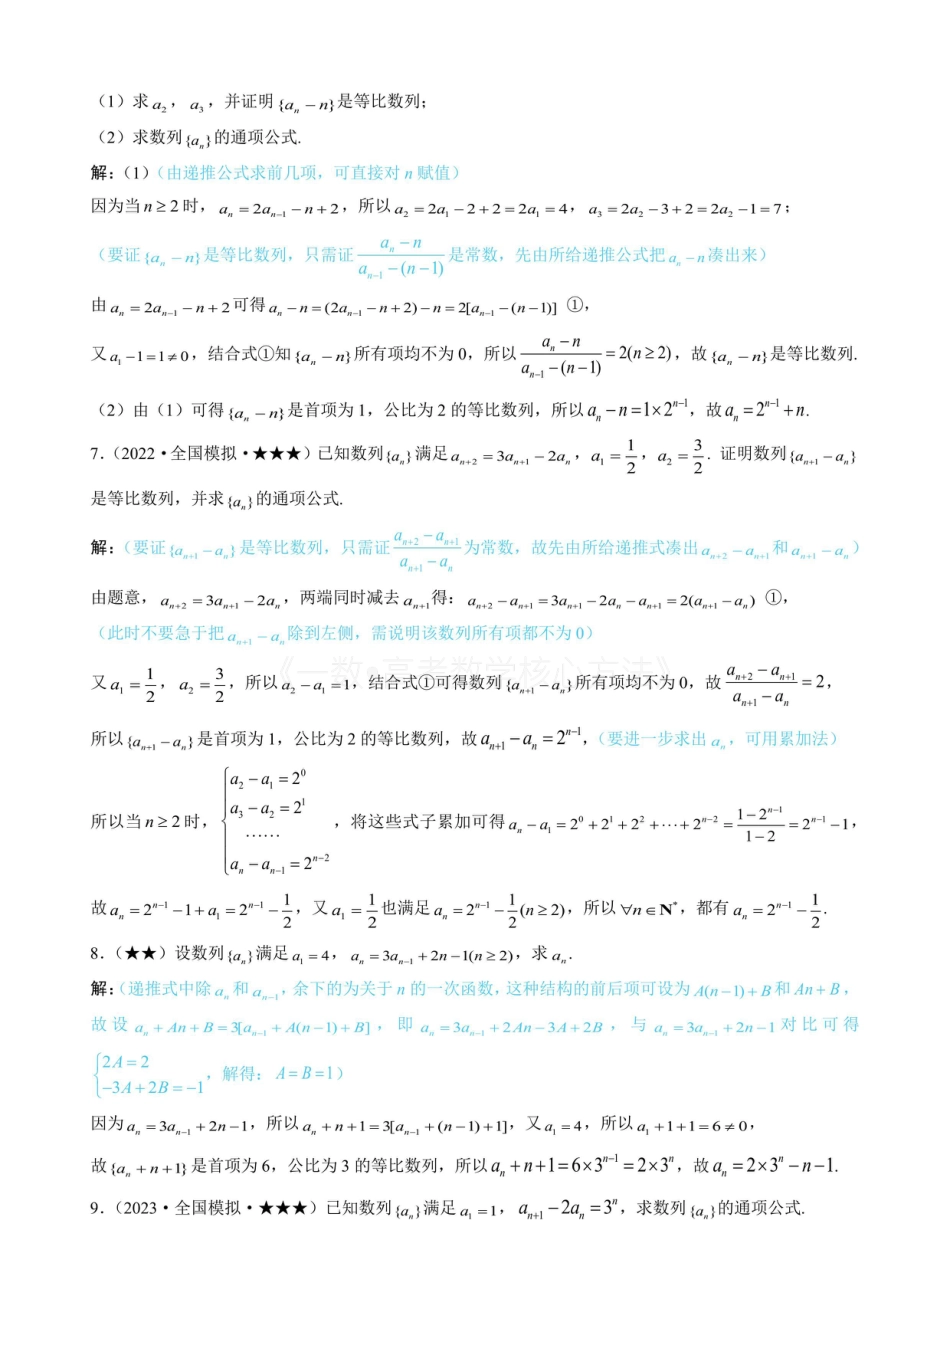 （1）求 a₂，a₃，并证明 {aₙ − n} 是等比数列；
（2）求数列 {aₙ} 的通项公式.
解：（1）（由递推公式求前几项，可直接对 n 赋值）
因为当 n ≥ 2 时，aₙ = 2aₙ₋₁ − n + 2，所以 a₂ = 2a₁ − 2 + 2 = 2a₁ = 4，a₃ = 2a₂ − 3 + 2 = 2a₂ − 1 = 7；
（要证 {aₙ − n} 是等比数列，只需证 (aₙ − n)/(aₙ₋₁ − (n−1)) 是常数，先由所给递推公式把 aₙ − n 凑出来）
由 aₙ = 2aₙ₋₁ − n + 2 可得 aₙ − n = (2aₙ₋₁ − n + 2) − n = 2[aₙ₋₁ − (n−1)] ①，
又 a₁ − 1 = 1 ≠ 0，结合式①知 {aₙ − n} 所有项均不为 0，所以 (aₙ − n)/(aₙ₋₁ − (n−1)) = 2(n ≥ 2)，故 {aₙ − n} 是等比数列.
（2）由（1）可得 {aₙ − n} 是首项为 1，公比为 2 的等比数列，所以 aₙ − n = 1×2ⁿ⁻¹，故 aₙ = 2ⁿ⁻¹ + n.
7.（2022·全国模拟·★★★）已知数列 {aₙ} 满足 aₙ₊₂ = 3aₙ₊₁ − 2aₙ，a₁ = 1/2，a₂ = 3/2. 证明数列 {aₙ₊₁ − aₙ}
是等比数列，并求 {aₙ} 的通项公式.
解：（要证 {aₙ₊₁ − aₙ} 是等比数列，只需证 (aₙ₊₂ − aₙ₊₁)/(aₙ₊₁ − aₙ) 为常数，故先由所给递推式凑出 aₙ₊₂ − aₙ₊₁ 和 aₙ₊₁ − aₙ）
由题意，aₙ₊₂ = 3aₙ₊₁ − 2aₙ，两端同时减去 aₙ₊₁ 得：aₙ₊₂ − aₙ₊₁ = 3aₙ₊₁ − 2aₙ − aₙ₊₁ = 2(aₙ₊₁ − aₙ) ①，
（此时不要急于把 aₙ₊₁ − aₙ 除到左侧，需说明该数列所有项都不为 0）
《一数•高考数学核心方法》
又 a₁ = 1/2，a₂ = 3/2，所以 a₂ − a₁ = 1，结合式①可得数列 {aₙ₊₁ − aₙ} 所有项均不为 0，故 (aₙ₊₂ − aₙ₊₁)/(aₙ₊₁ − aₙ) = 2，
所以 {aₙ₊₁ − aₙ} 是首项为 1，公比为 2 的等比数列，故 aₙ₊₁ − aₙ = 2ⁿ⁻¹，（要进一步求出 aₙ，可用累加法）
所以当 n ≥ 2 时，{a₂ − a₁ = 2⁰
a₃ − a₂ = 2¹
……
aₙ − aₙ₋₁ = 2ⁿ⁻²，将这些式子累加可得 aₙ − a₁ = 2⁰ + 2¹ + 2² + ⋯ + 2ⁿ⁻² = (1 − 2ⁿ⁻¹)/(1 − 2) = 2ⁿ⁻¹ − 1，
故 aₙ = 2ⁿ⁻¹ − 1 + a₁ = 2ⁿ⁻¹ − 1/2，又 a₁ = 1/2 也满足 aₙ = 2ⁿ⁻¹ − 1/2 (n ≥ 2)，所以 ∀n ∈ N*，都有 aₙ = 2ⁿ⁻¹ − 1/2.
8.（★★）设数列 {aₙ} 满足 a₁ = 4，aₙ = 3aₙ₋₁ + 2n − 1(n ≥ 2)，求 aₙ.
解：（递推式中除 aₙ 和 aₙ₋₁，余下的为关于 n 的一次函数，这种结构的前后项可设为 A(n−1) + B 和 An + B，
故设 aₙ + An + B = 3[aₙ₋₁ + A(n−1) + B]，即 aₙ = 3aₙ₋₁ + 2An − 3A + 2B，与 aₙ = 3aₙ₋₁ + 2n − 1 对比可得
{2A = 2
−3A + 2B = −1，解得：A = B = 1）
因为 aₙ = 3aₙ₋₁ + 2n − 1，所以 aₙ + n + 1 = 3[aₙ₋₁ + (n−1) + 1]，又 a₁ = 4，所以 a₁ + 1 + 1 = 6 ≠ 0，
故 {aₙ + n + 1} 是首项为 6，公比为 3 的等比数列，所以 aₙ + n + 1 = 6×3ⁿ⁻¹ = 2×3ⁿ，故 aₙ = 2×3ⁿ − n − 1.
9.（2023·全国模拟·★★★）已知数列 {aₙ} 满足 a₁ = 1，aₙ₊₁ − 2aₙ = 3ⁿ，求数列 {aₙ} 的通项公式.